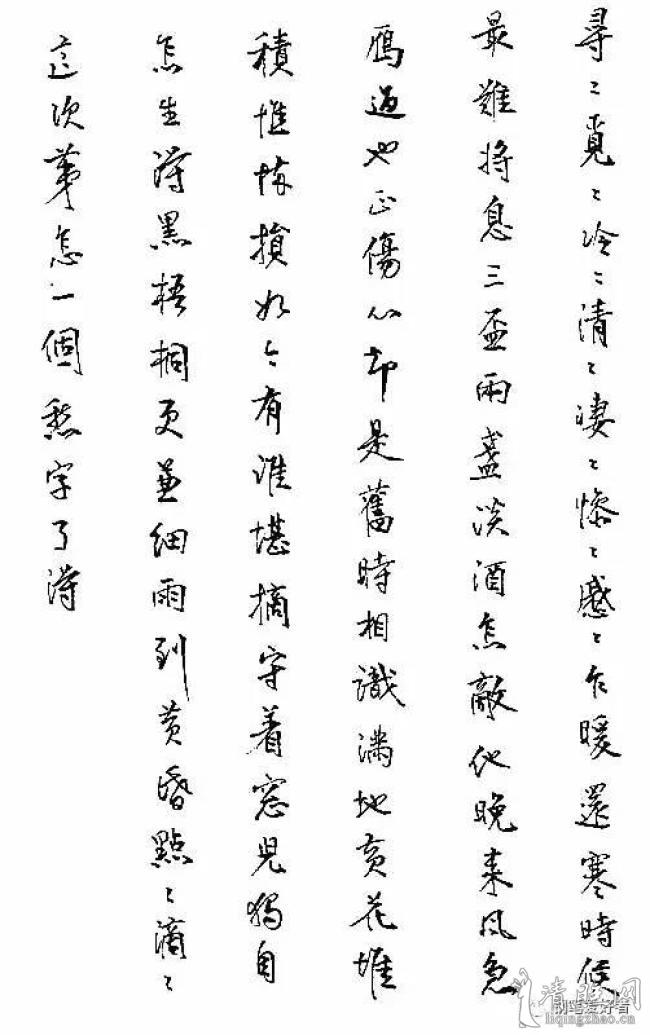 尋〻覓〻冷〻清〻凄〻慘〻慼〻乍暖還寒時候
最難將息三盃兩盞淡酒怎敵他晚来风急
鴈過也正傷心却是舊時相識滿地黃花堆
積憔悴損如今有誰堪摘守着窓兒獨自
怎生得黑梧桐更兼細雨到黃昏點〻滴〻
這次第怎一個愁字了得
清昭网
liqingzhao.com
钢笔爱好者